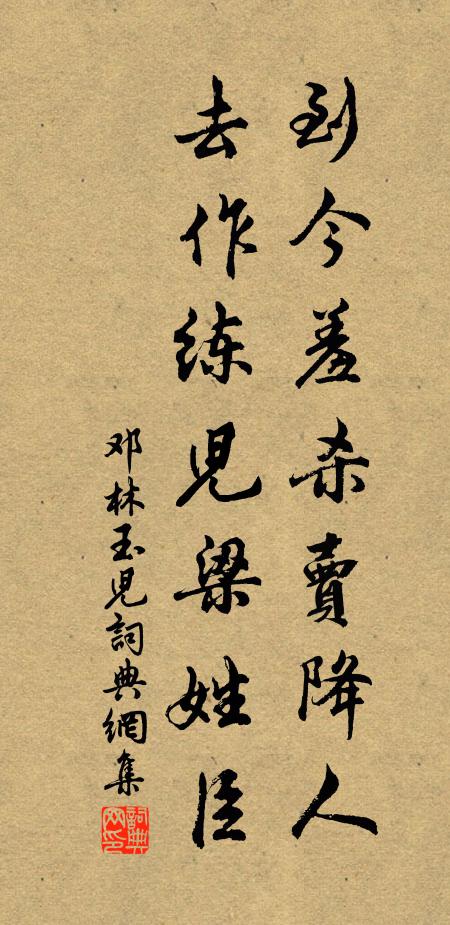 到今羞杀賣降人
去作练兒梁姓臣
邓林玉兒詞典網集
詞典
网印